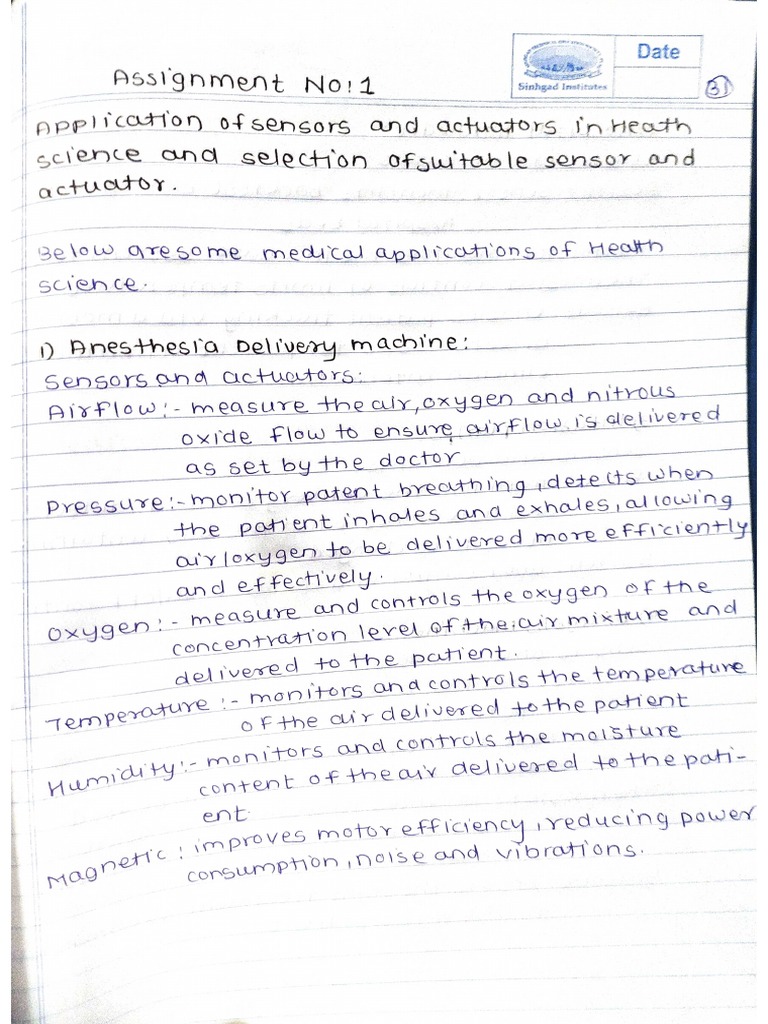 Date
Sinhgad Institutes
31
Assignment No: 1
Application of sensors and actuators in Heath
science and selection of suitable sensor and
actuator.
Below are some medical applications of Heath
science.
1) Anesthesia Delivery machine:
Sensors and actuators:
Airflow:- measure the air, oxygen and nitrous
oxide flow to ensure airflow is delivered
as set by the doctor
Pressure:- monitor patent breathing, detects when
the patient inhales and exhales, allowing
air/oxygen to be delivered more efficiently
and effectively.
Oxygen:- measure and controls the oxygen of the
concentration level of the air mixture and
delivered to the patient.
Temperature :- monitors and controls the temperature
of the air delivered to the patient
Humidity:- monitors and controls the moisture
content of the air delivered to the pati-
ent.
Magnetic : improves motor efficiency, reducing power
consumption, noise and vibrations.